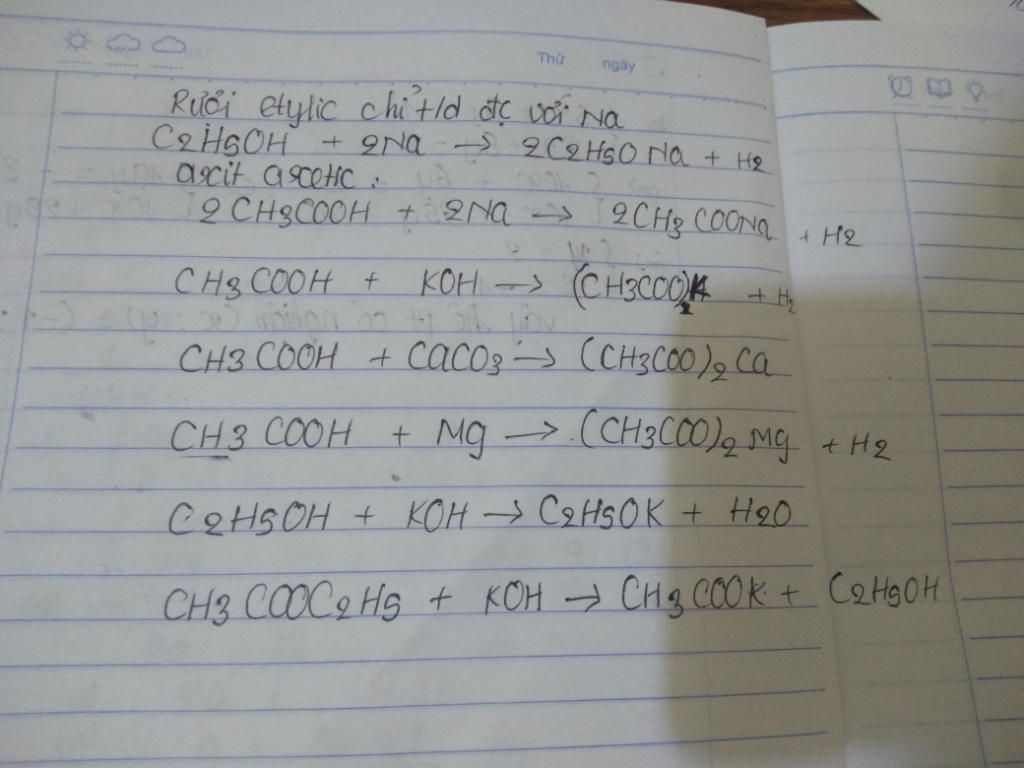 Thứ ngày
Rưỡi etylic chỉ t/d đc với Na
C2H5OH + 2Na → 2C2H5ONa + H2
axit axetic:
2CH3COOH + 2Na → 2CH3COONa + H2
CH3COOH + KOH → (CH3COO)K + H2
CH3COOH + CaCO3 → (CH3COO)2Ca
CH3COOH + Mg → (CH3COO)2Mg + H2
C2H5OH + KOH → C2H5OK + H2O
CH3COOC2H5 + KOH → CH3COOK + C2H5OH